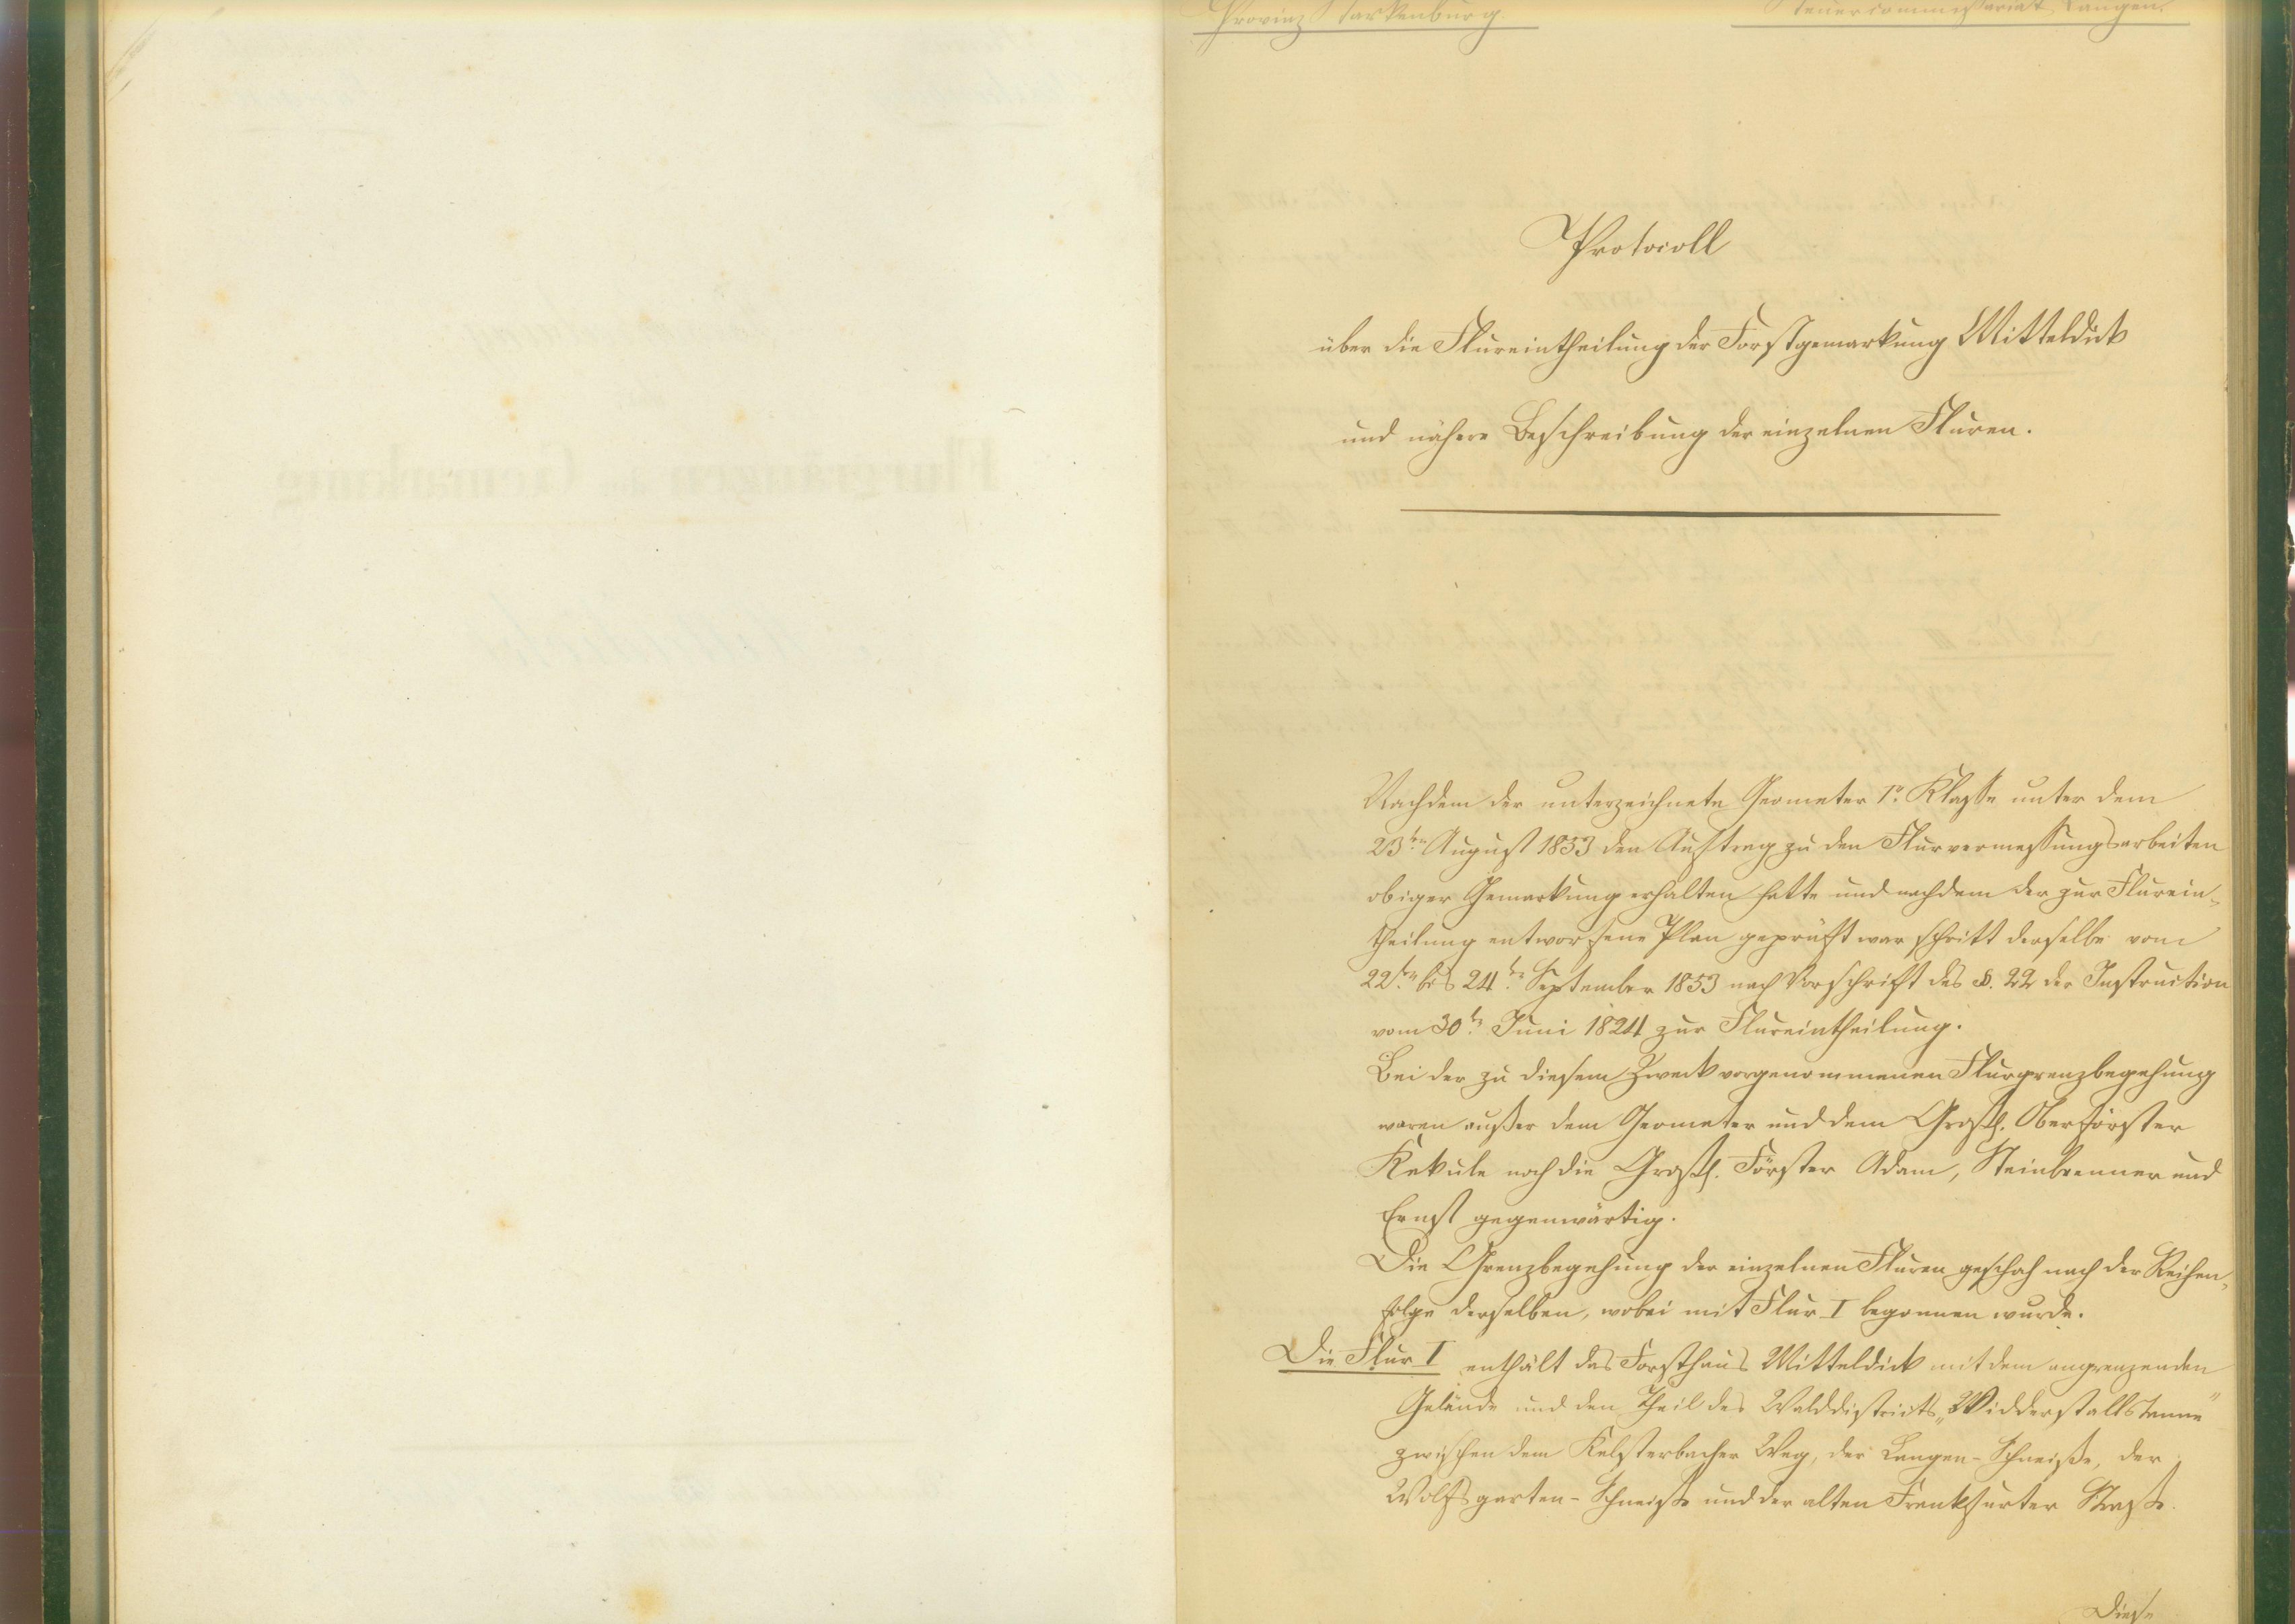 Provinz Starkenburg. Steuercommissariat Langen.
Protocoll
über die Flureintheilung der Forstgemarkung Mitteldick
und nähere Beschreibung der einzelnen Fluren.
Nachdem der unterzeichnete Geometer 1r. Klasse unter dem
23ten August 1853 den Auftrag zu den Flurvermessungsarbeiten
obiger Gemarkung erhalten hatte und nachdem der zur Flurein-
theilung entworfene Plan geprüft war schritt derselbe vom
22ten bis 24ten September 1853 nach Vorschrift des §. 22 der Instruction
vom 30ten Juni 1824 zur Flureintheilung.
Bei der zu diesem Zweck vorgenommenen Flurgrenzbegehung
waren außer dem Geometer und dem Großh. Oberförster
Kekule noch die Großh. Förster Adam, Steinbrenner und
Ernst gegenwärtig.
Die Grenzbegehung der einzelnen Fluren geschah nach der Reihen-
folge derselben, wobei mit Flur I begonnen wurde.
Die Flur I enthält das Forsthaus Mitteldick mit dem angrenzenden
Gelände und den Theil des Walddistricts „Widderstallstanne"
zwischen dem Kelsterbacher Weg, der Langen-Schneiße, der
Wolfsgarten-Schneiße und der alten Frankfurter Straße.
Diese